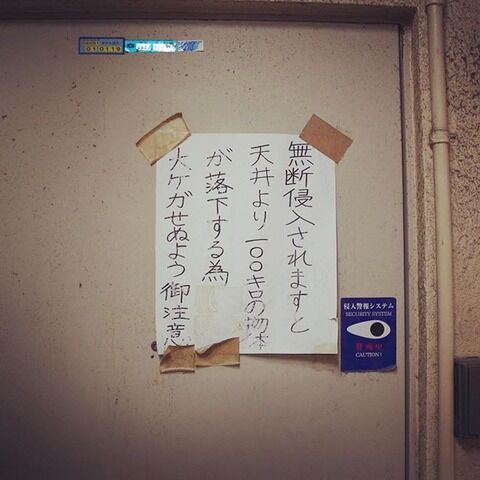 010119
無断侵入されますと
天井より一〇〇キロの物体
が落下する為
大ケガせぬよう御注意
侵入警報システム
SECURITY SYSTEM
警戒中
CAUTION!